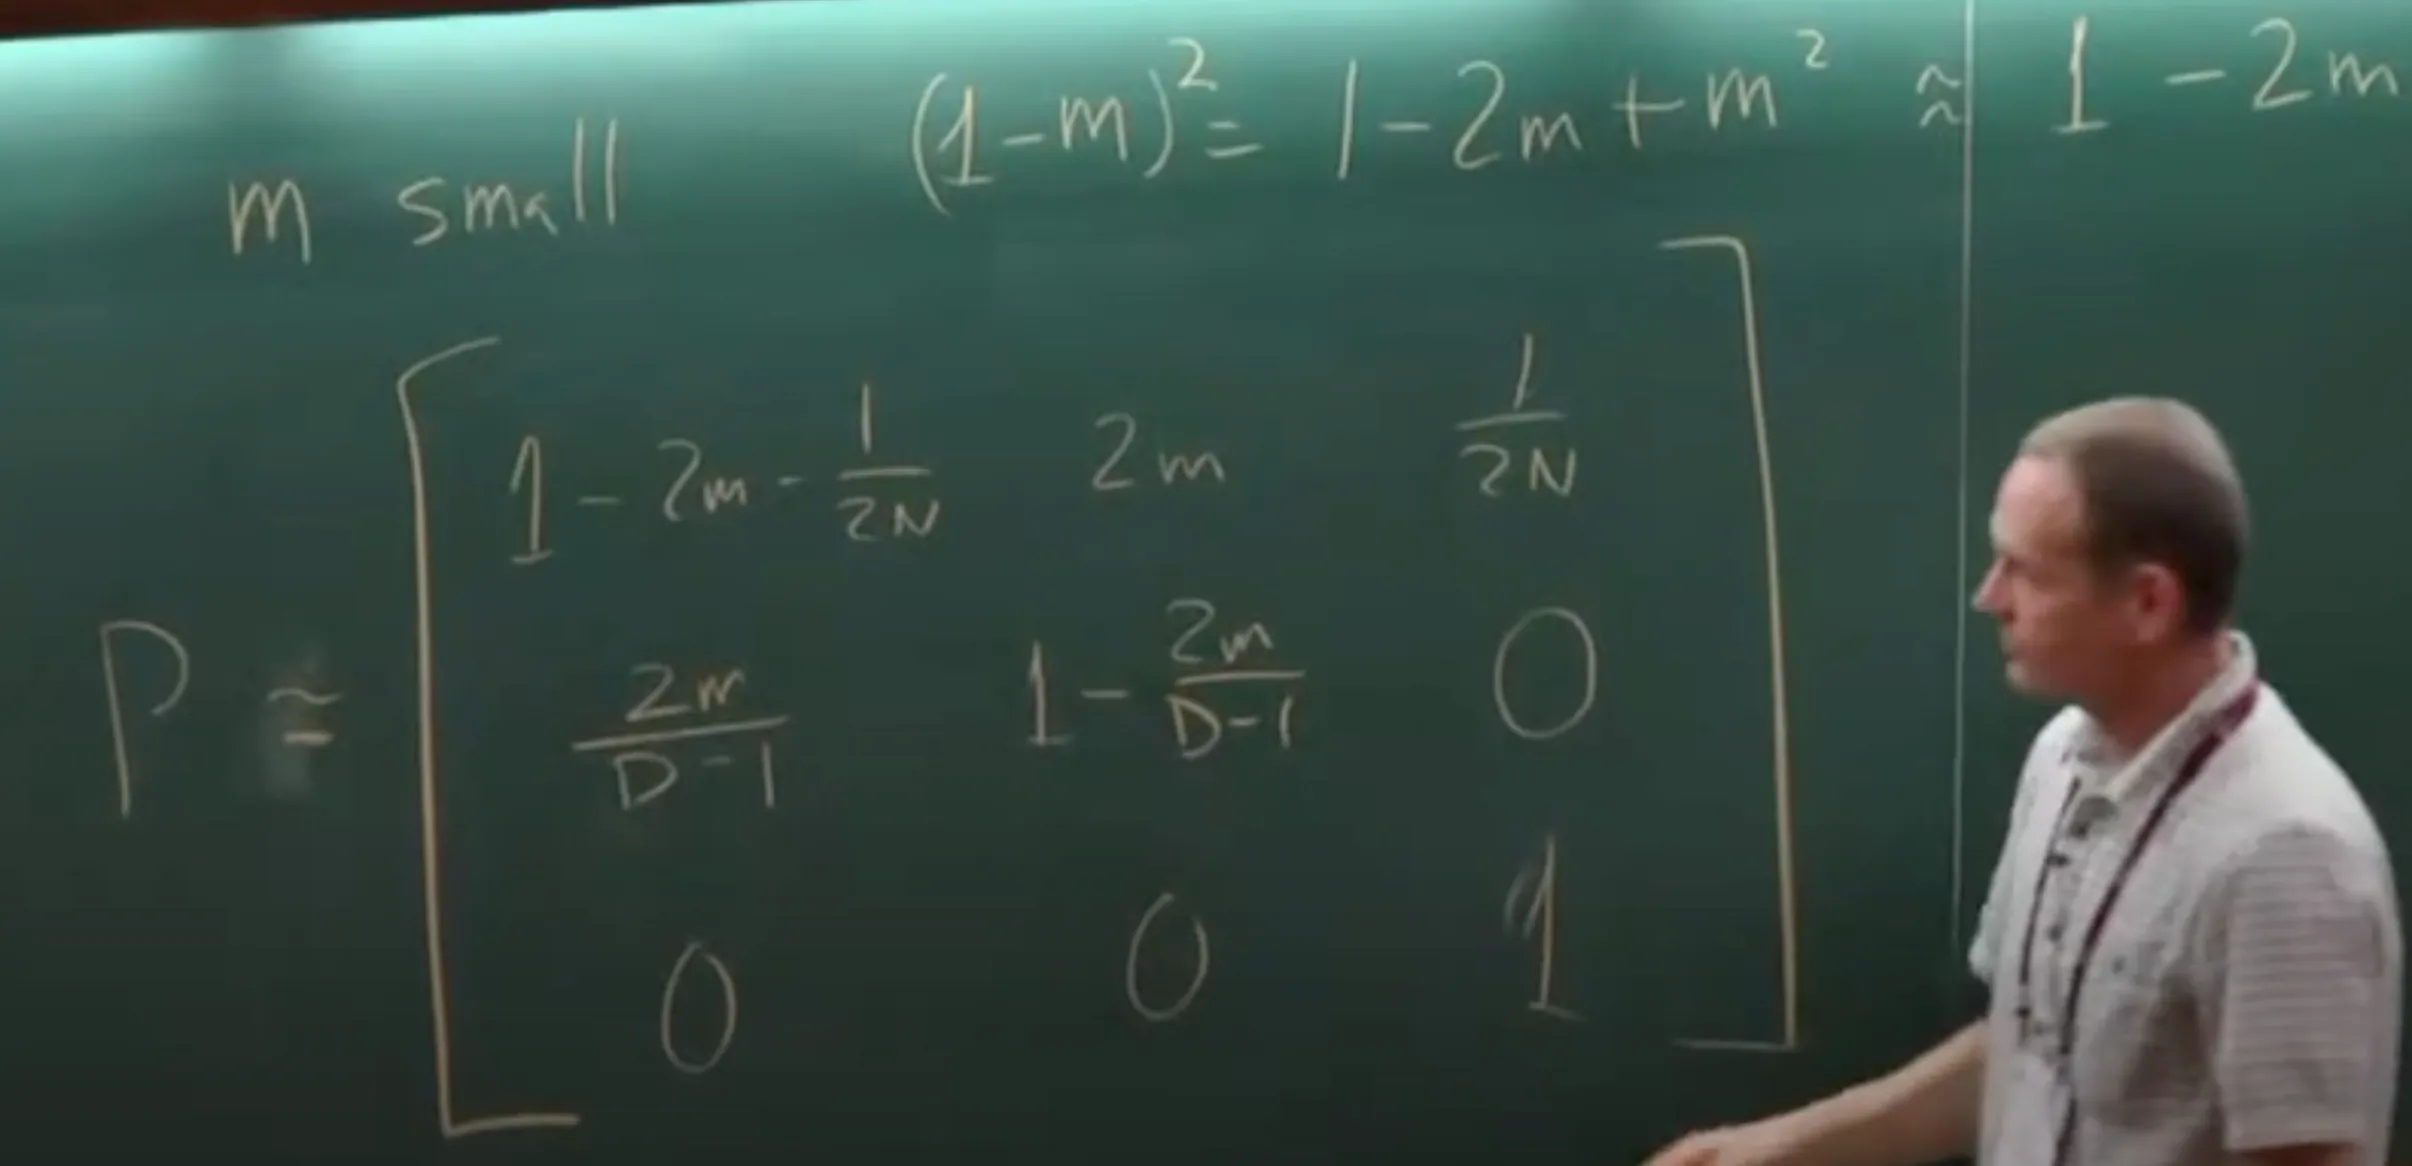 m small (1-m)² = 1-2m+m² ≈ 1-2m
P ≈ [ 1-2m-1/2N 2m 1/2N
2m/D-1 1-2m/D-1 0
0 0 1 ]